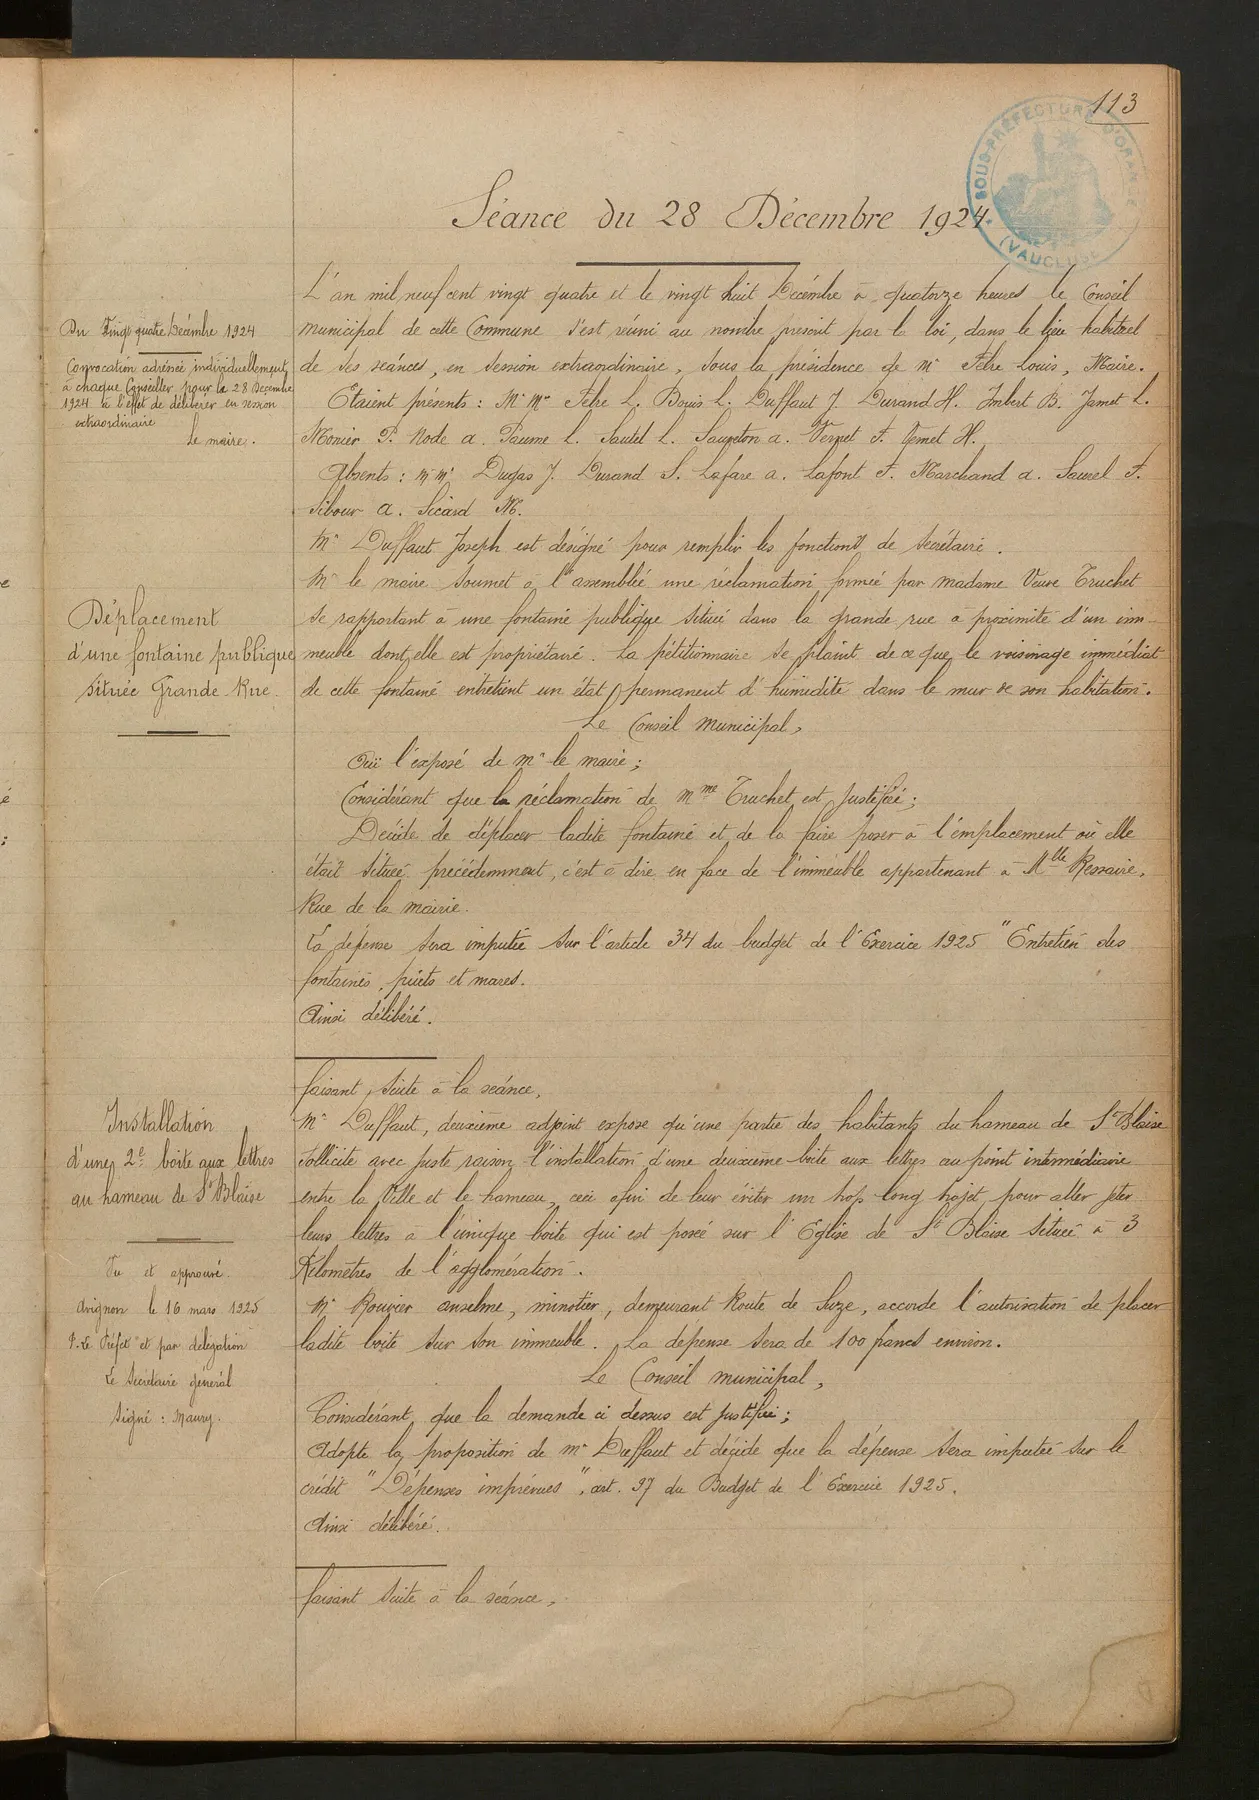 113
SOUS-PRÉFECTURE D'ORANGE
(VAUCLUSE)
Séance du 28 Décembre 1924
Du Vingt quatre Décembre 1924
Convocation adressée individuellement
à chaque Conseiller pour le 28 Décembre
1924 à l'effet de délibérer en session
extraordinaire
Le maire.
L'an mil neuf cent vingt quatre et le vingt huit Décembre à quatorze heures le Conseil
municipal de cette Commune s'est réuni au nombre prescrit par la loi, dans le lieu habituel
de ses séances, en session extraordinaire, sous la présidence de Mr Fabre Louis, Maire.
Etaient présents : M.Mrs Fabre L. Bouis L. Duffaut J. Durand H. Imbert B. Jamet L.
Monier P. Node A. Paume L. Sautel L. Saurton A. Vernet F. Yemet H.
Absents : M.Mrs Dugas J. Durand S. Lafare A. Lafont F. Marchand A. Saurel F.
Sibour A. Sicard M.
Mr Duffaut Joseph est désigné pour remplir les fonctions de Secrétaire.
Déplacement
d'une fontaine publique
située Grande Rue
Mr le maire soumet à l'assemblée une réclamation formée par madame Veuve Truchet
se rapportant à une fontaine publique située dans la grande rue à proximité d'un im-
meuble dont elle est propriétaire. La pétitionnaire se plaint de ce que le voisinage immédiat
de cette fontaine entretient un état permanent d'humidité dans le mur de son habitation.
Le Conseil municipal,
Ouï l'exposé de Mr le maire ;
Considérant que la réclamation de Mme Truchet est justifiée ;
Décide de déplacer ladite fontaine et de la faire poser à l'emplacement où elle
était située précédemment, c'est à dire en face de l'immeuble appartenant à Mlle Ressaire,
Rue de la mairie.
La dépense sera imputée sur l'article 34 du budget de l'Exercice 1925 "Entretien des
fontaines, puits et mares.
Ainsi délibéré.
faisant suite à la séance,
Installation
d'une 2e boite aux lettres
au hameau de St Blaise
Mr Duffaut, deuxième adjoint expose qu'une partie des habitants du hameau de St Blaise
sollicite avec juste raison l'installation d'une deuxième boite aux lettres au point intermédiaire
entre la Ville et le hameau, ceci afin de leur éviter un trop long trajet pour aller jeter
leurs lettres à l'unique boite qui est posée sur l'Eglise de St Blaise située à 3
Kilomètres de l'agglomération.
Vu et approuvé.
Avignon le 16 mars 1925
P. Le Préfet et par délégation
Le Secrétaire général
Signé : Maury.
Mr Rouvier Anselme, minotier, demeurant Route de Suze, accorde l'autorisation de placer
ladite boite sur son immeuble. La dépense sera de 100 francs environ.
Le Conseil municipal,
Considérant que la demande ci dessus est justifiée ;
Adopte la proposition de Mr Duffaut et décide que la dépense sera imputée sur le
crédit "Dépenses imprévues", art. 97 du Budget de l'Exercice 1925.
Ainsi délibéré.
faisant suite à la séance,